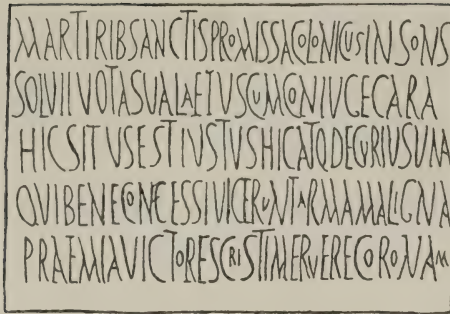 MARTIRIBSANCTISPROMISSACOLONICUSINSONS
SOLVITVOTASVALAETVSCUMCONIVGECARA
HICSITVSESTIVSTVSHICATQDECURIUSUNA
QVIBENECONFESSIVICERUNTARMAMALIGNA
PRAEMIAVICTORESCRISTIMERVERECORONAM